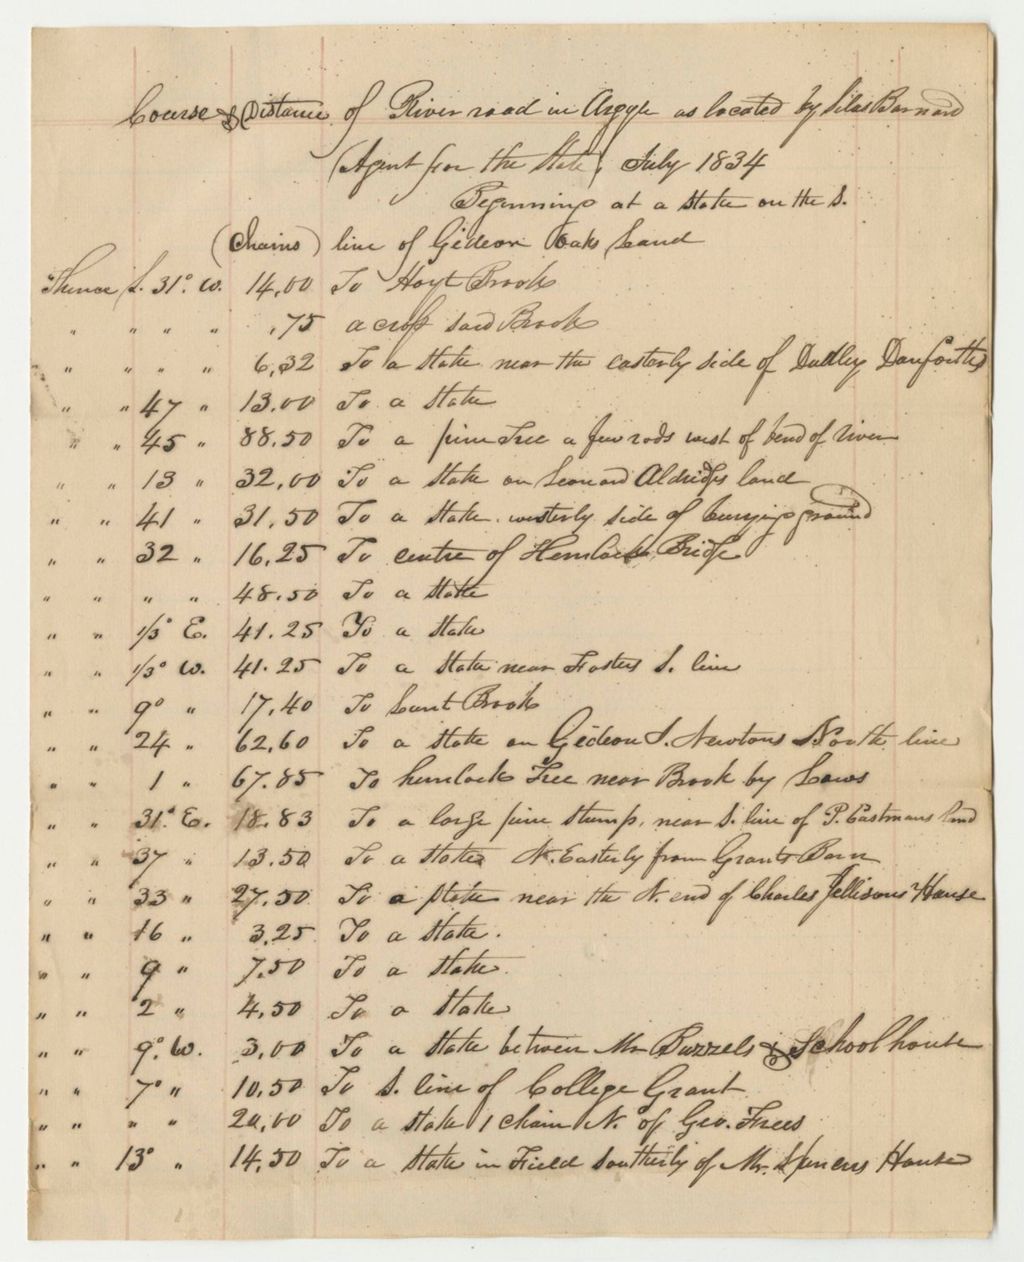 Course & Distance of River road in Argyle as located by Silas Barnard
(Agent for the State) July 1834
Beginning at a Stake on the S.
(Chains) line of Gideon Oaks Land
Thence S. 31° W. 14,00 To Hoyt Brook
" " " " ,75 across said Brook
" " " " 6,32 To a Stake near the easterly side of Dudley Danforths
" " 47 " 13.00 To a Stake
" " 45 " 88.50 To a pine Tree a few rods west of bend of river
" " 13 " 32,00 To a Stake on Leonard Aldridges land
" " 41 " 31,50 To a Stake westerly side of burying ground
" " 32 " 16,25 To centre of Hemlock Bridge
" " " " 48.50 To a Stake
" " 1/3° E. 41.25 To a Stake
" " 1/3° W. 41.25 To a Stake near Fosters S. line
" " 9° " 17,40 To Brook
" " 24 " 62,60 To a Stake on Gideon S. Newtons North line
" " 1 " 67.85 To hemlock Tree near Brook by
" " 31° E. 18.83 To a large pine Stump, near S. line of P. Eastmans land
" " 37 " 13.50 To a Stake N. Easterly from Grants Barn
" " 33 " 27.50 To a Stake near the N. end of Charles Jellisons House
" " 16 " 3,25 To a Stake.
" " 9 " 7,50 To a Stake.
" " 2 " 4,50 To a Stake
" " 9° W. 3,00 To a Stake between Mr Buzzels & School house
" " 7° " 10,50 To S. line of College Grant
" " " " 20,00 To a Stake 1 chain N. of Geo. Frees
" " 13° " 14,50 To a Stake in Field Southerly of Mr. Spencers House